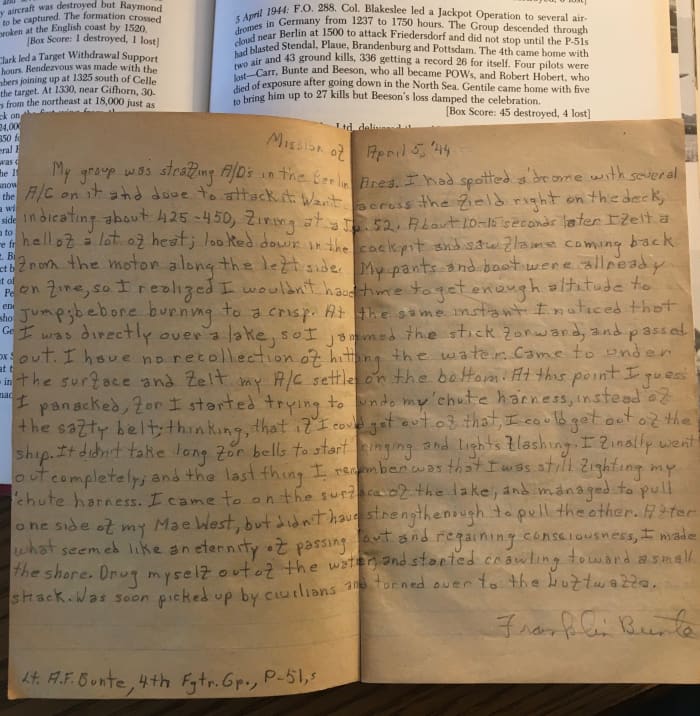 y aircraft was destroyed but Raymond
to be captured. The formation crossed
broken at the English coast by 1520.
[Box Score: 1 destroyed, 1 lost]
Clark led a Target Withdrawal Support
hours. Rendezvous was made with the
bers joining up at 1325 south of Celle
the target. At 1330, near Gifhorn, 30-
s from the northeast at 18,000 just as
5 April 1944: F.O. 288. Col. Blakeslee led a Jackpot Operation to several air-
dromes in Germany from 1237 to 1750 hours. The Group descended through
cloud near Berlin at 1500 to attack Friedersdorf and did not stop until the P-51s
had blasted Stendal, Plaue, Brandenburg and Pottsdam. The 4th came home with
two air and 43 ground kills, 336 getting a record 26 for itself. Four pilots were
lost—Carr, Bunte and Beeson, who all became POWs, and Robert Hobert, who
died of exposure after going down in the North Sea. Gentile came home with five
to bring him up to 27 kills but Beeson's loss damped the celebration.
[Box Score: 45 destroyed, 4 lost]
Mission of April 5, '44
My group was strafing A/D's in the Berlin Area. I had spotted a 'drome with several
A/C on it and dove to attack it. Went across the field right on the deck,
indicating about 425-450, firing at a Ju. 52. About 10-15 seconds later I felt a
hell of a lot of heat; looked down in the cockpit and saw flame coming back
from the motor along the left side. My pants and boot were allready
on fire, so I realized I wouldn't have time to get enough altitude to
jump, before burning to a crisp. At the same instant I noticed that
I was directly over a lake, so I jammed the stick forward, and passed
out. I have no recollection of hitting the water. Came to under
the surface and felt my A/C settle on the bottom. At this point I guess
I panacked, for I started trying to undo my 'chute harness, instead of
the safty belt; thinking, that if I could get out of that, I could get out of the
ship. It didn't take long for bells to start ringing and lights flashing. I finally went
out completely, and the last thing I remember was that I was still fighting my
'chute harness. I came to on the surface of the lake, and managed to pull
one side of my Mae West, but didn't have strength enough to pull the other. After
what seemed like an eternity of passing out and regaining consciousness, I made
the shore. Drug myself out of the water, and started crawling toward a small
shack. Was soon picked up by civilians and turned over to the Luftwaffe.
Franklin Bunte
Lt. A.F. Bunte, 4th Fgtr. Gp., P-51,s